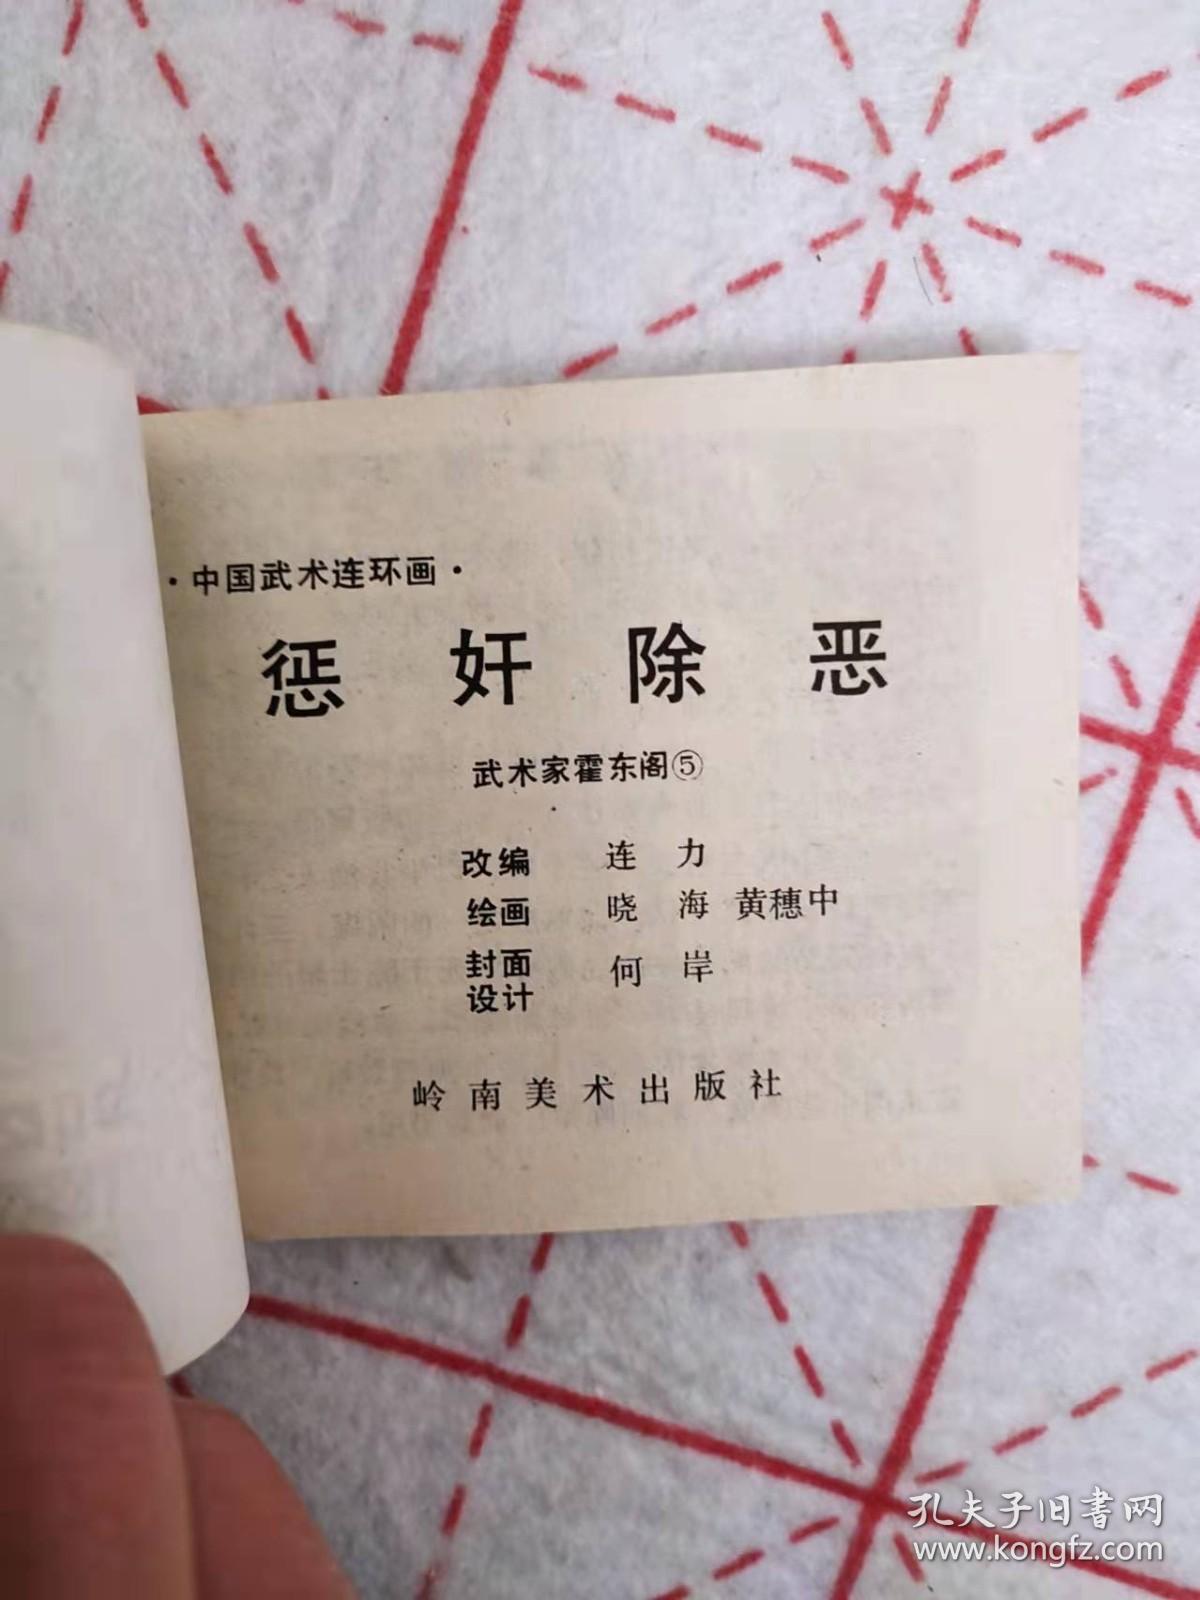 ·中国武术连环画·
惩奸除恶
武术家霍东阁⑤
改编 连力
绘画 晓海 黄穗中
封面设计 何岸
岭南美术出版社
孔夫子旧书网
www.kongfz.com